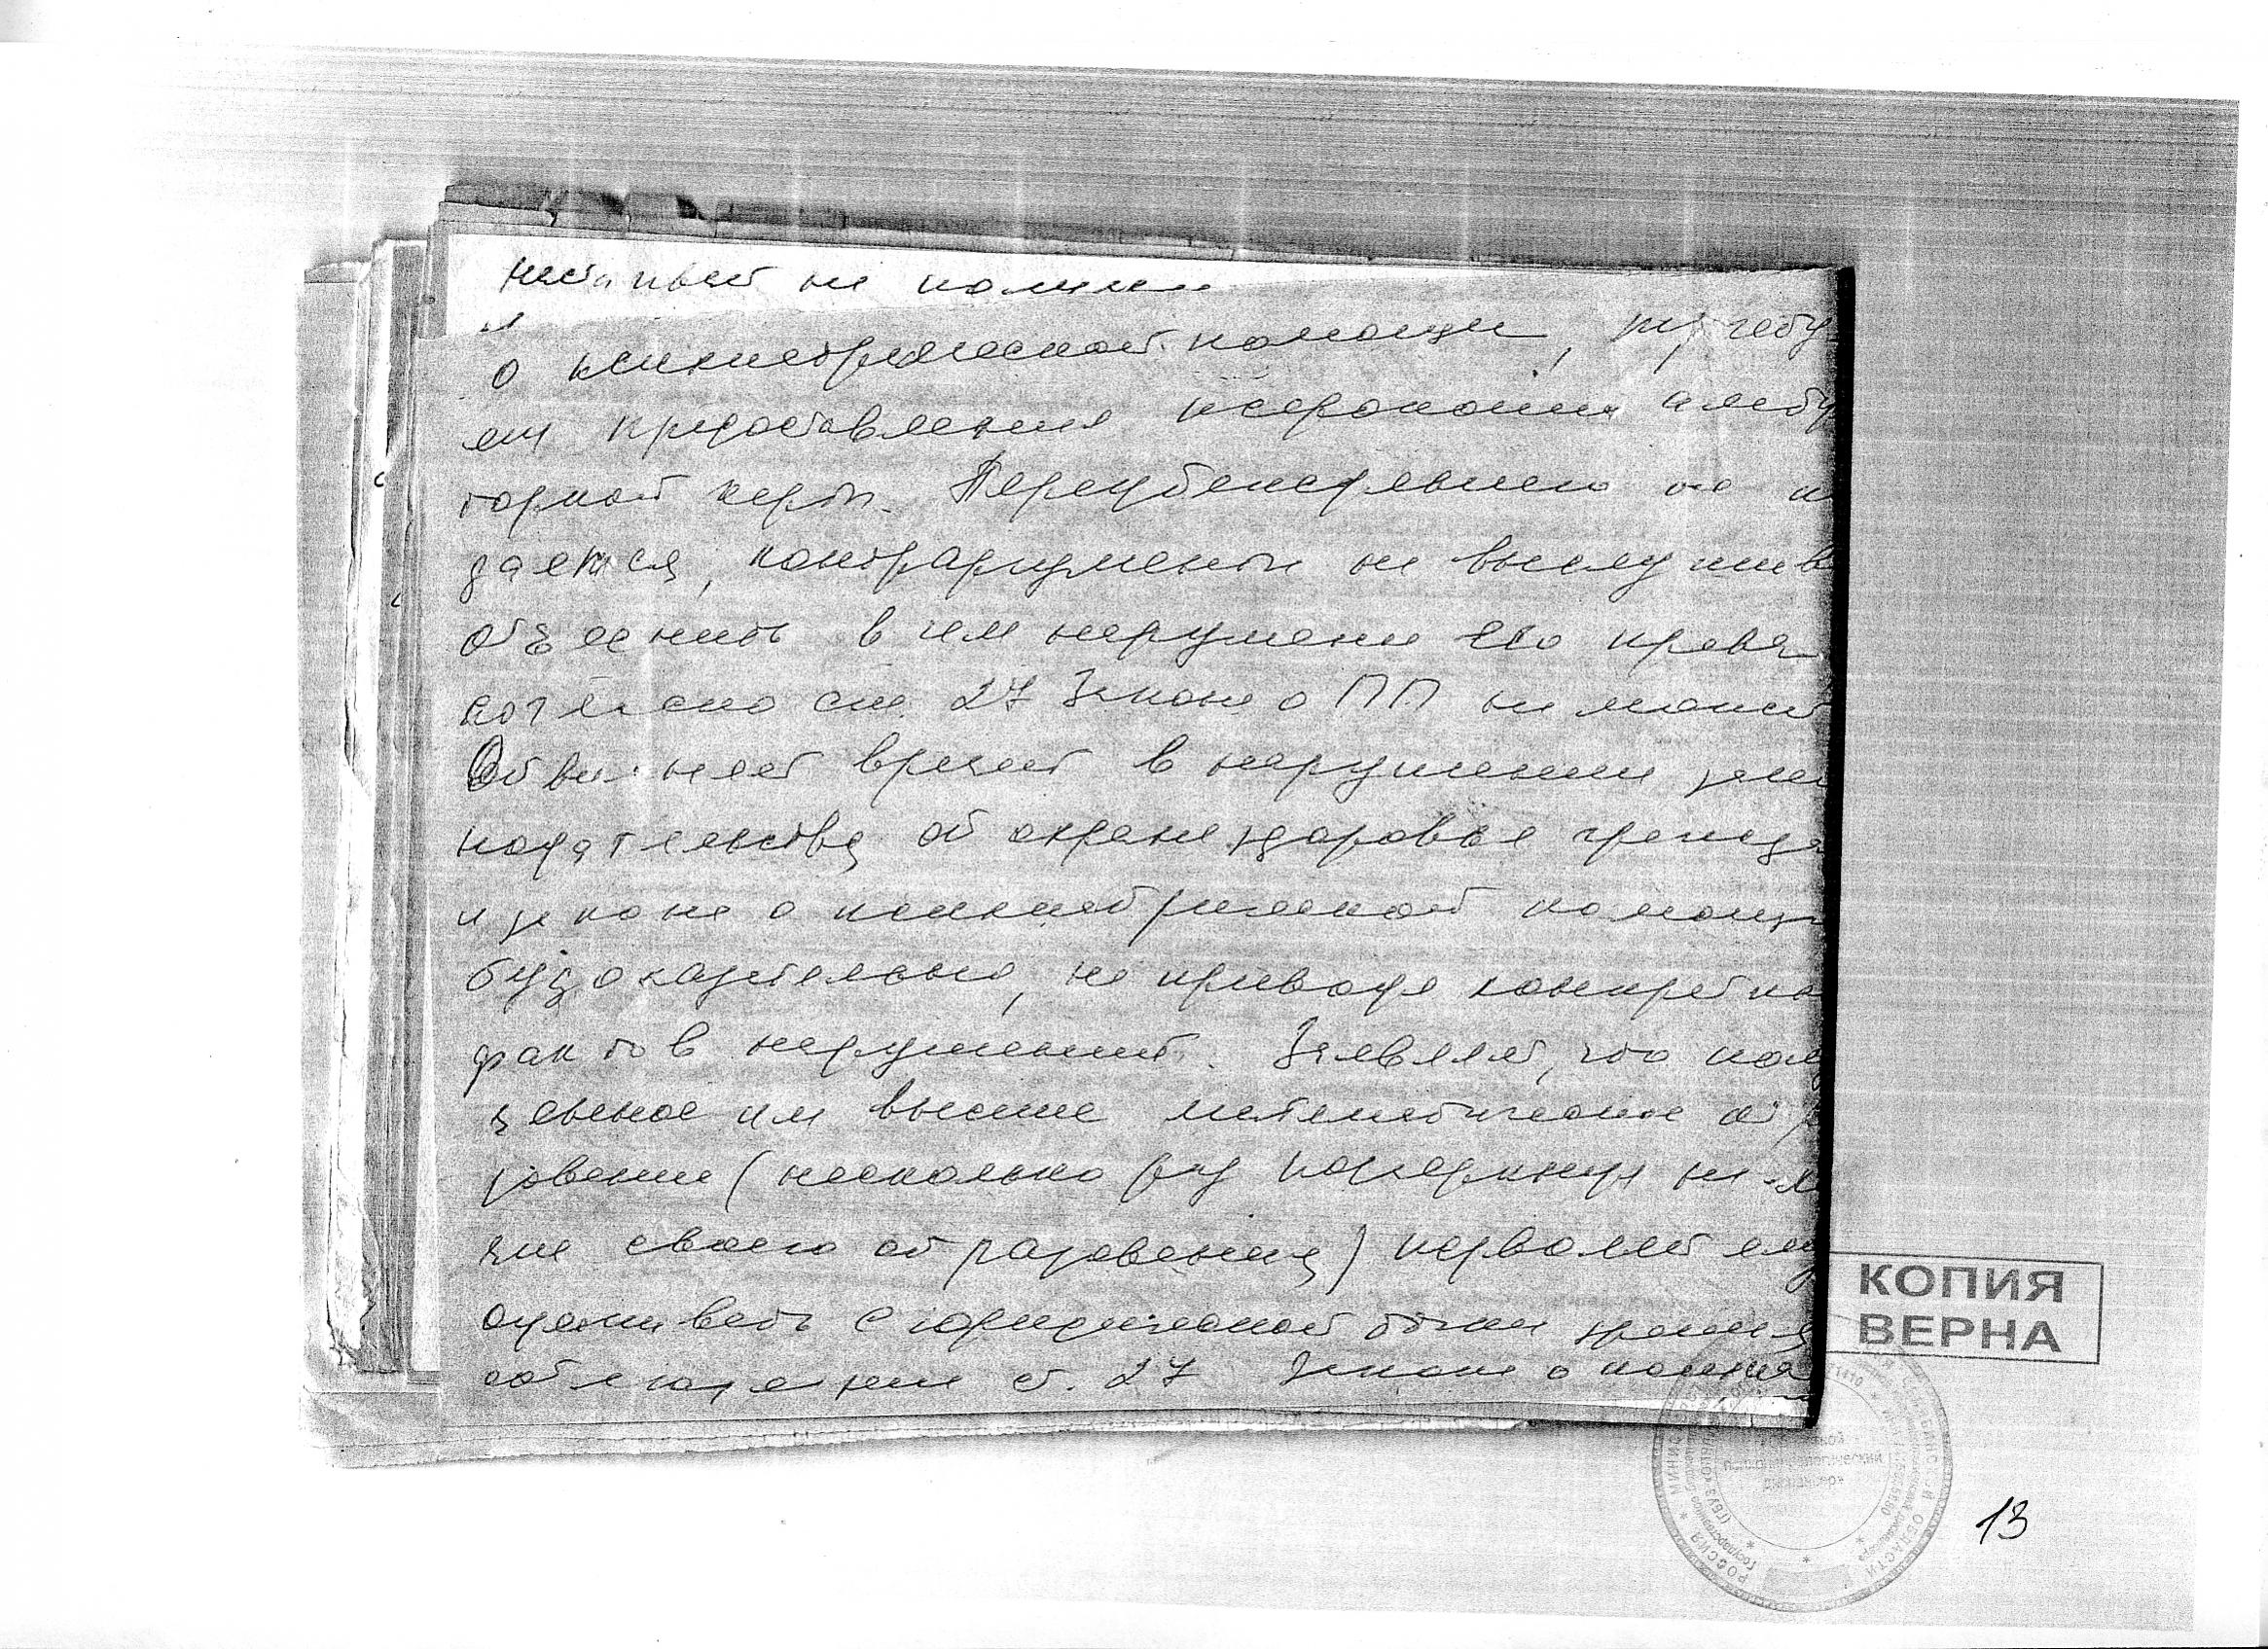 настаивает на полном
о психиатрической помощи, требу
ет предоставления ксерокопии амбу
торной карты. Переубеждению не п
дается, контраргументы не выслушив
объяснить в чем нарушены его права
согласно ст. 27 Закона о ПП не может
Обвиняет врачей в нарушении зако
нодательства об охране здоровья гражда
и законе о психиатрической помощи
бездоказательно, не приводя конкретны
фактов нарушений. Заявляет, что пол
ученное им высшее математическое обр
зование (несколько раз подчеркнул нали
чие своего образования) позволяет ему
оценивать с юридической точки зрения
соблюдение ст. 27 Закона о психиа
КОПИЯ
ВЕРНА
РОССИЯ * МИНИС
ЧЕЛЯБИНСКОЙ ОБЛАСТИ
Государственное
13